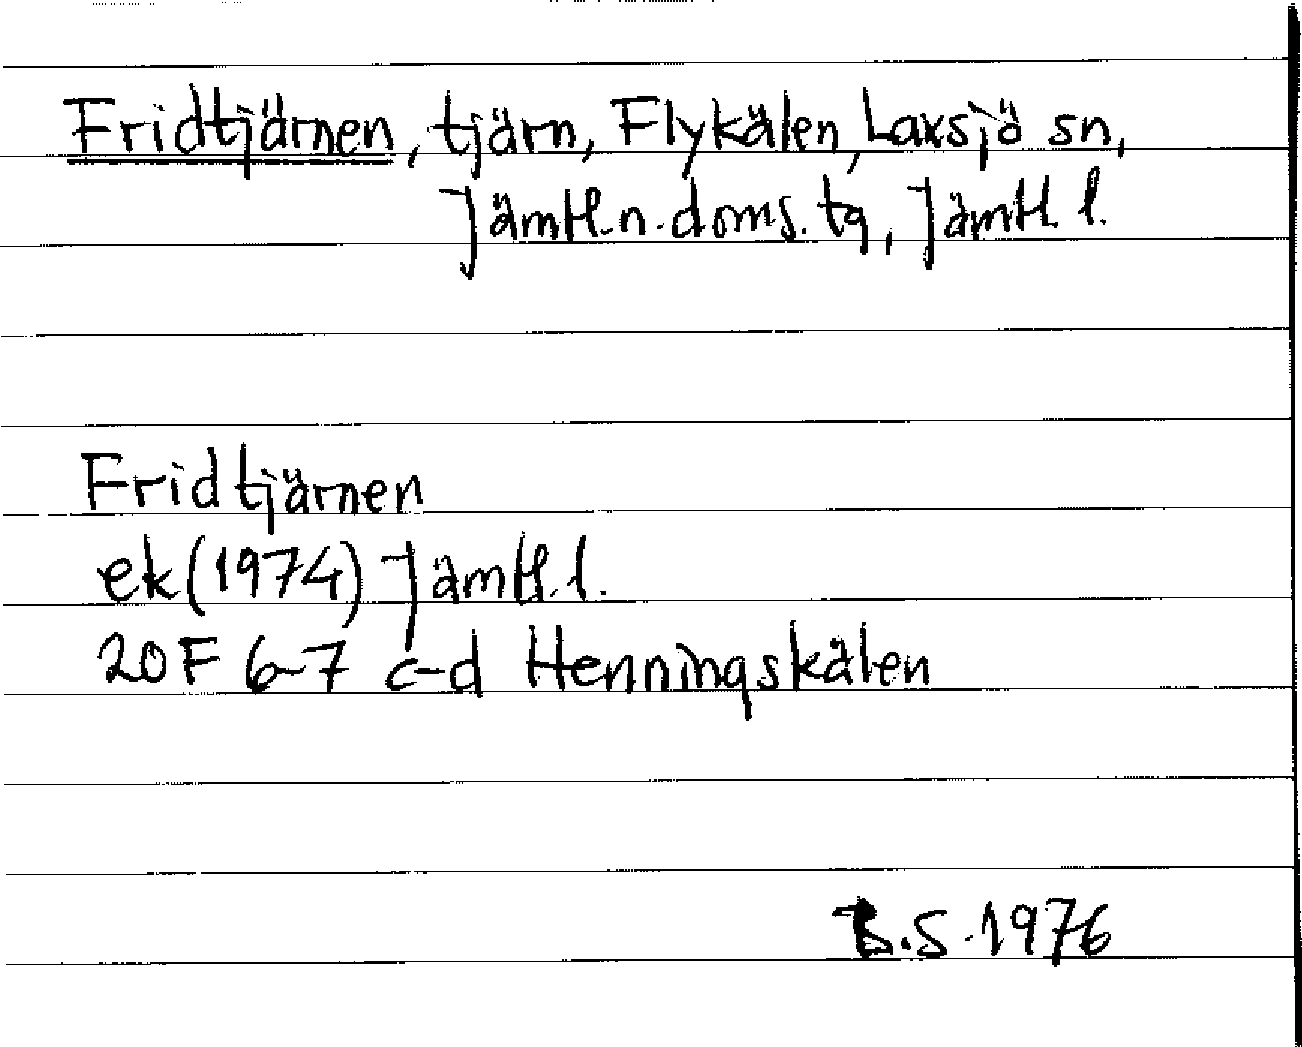 Fridtjärnen, tjärn, Flykälen, Laxsjö sn,
Jämtl.n.doms.tg, Jämtl. l.
Fridtjärnen
ek (1974) Jämtl. l.
20 F 6-7 c-d Henningskälen
B.S. 1976